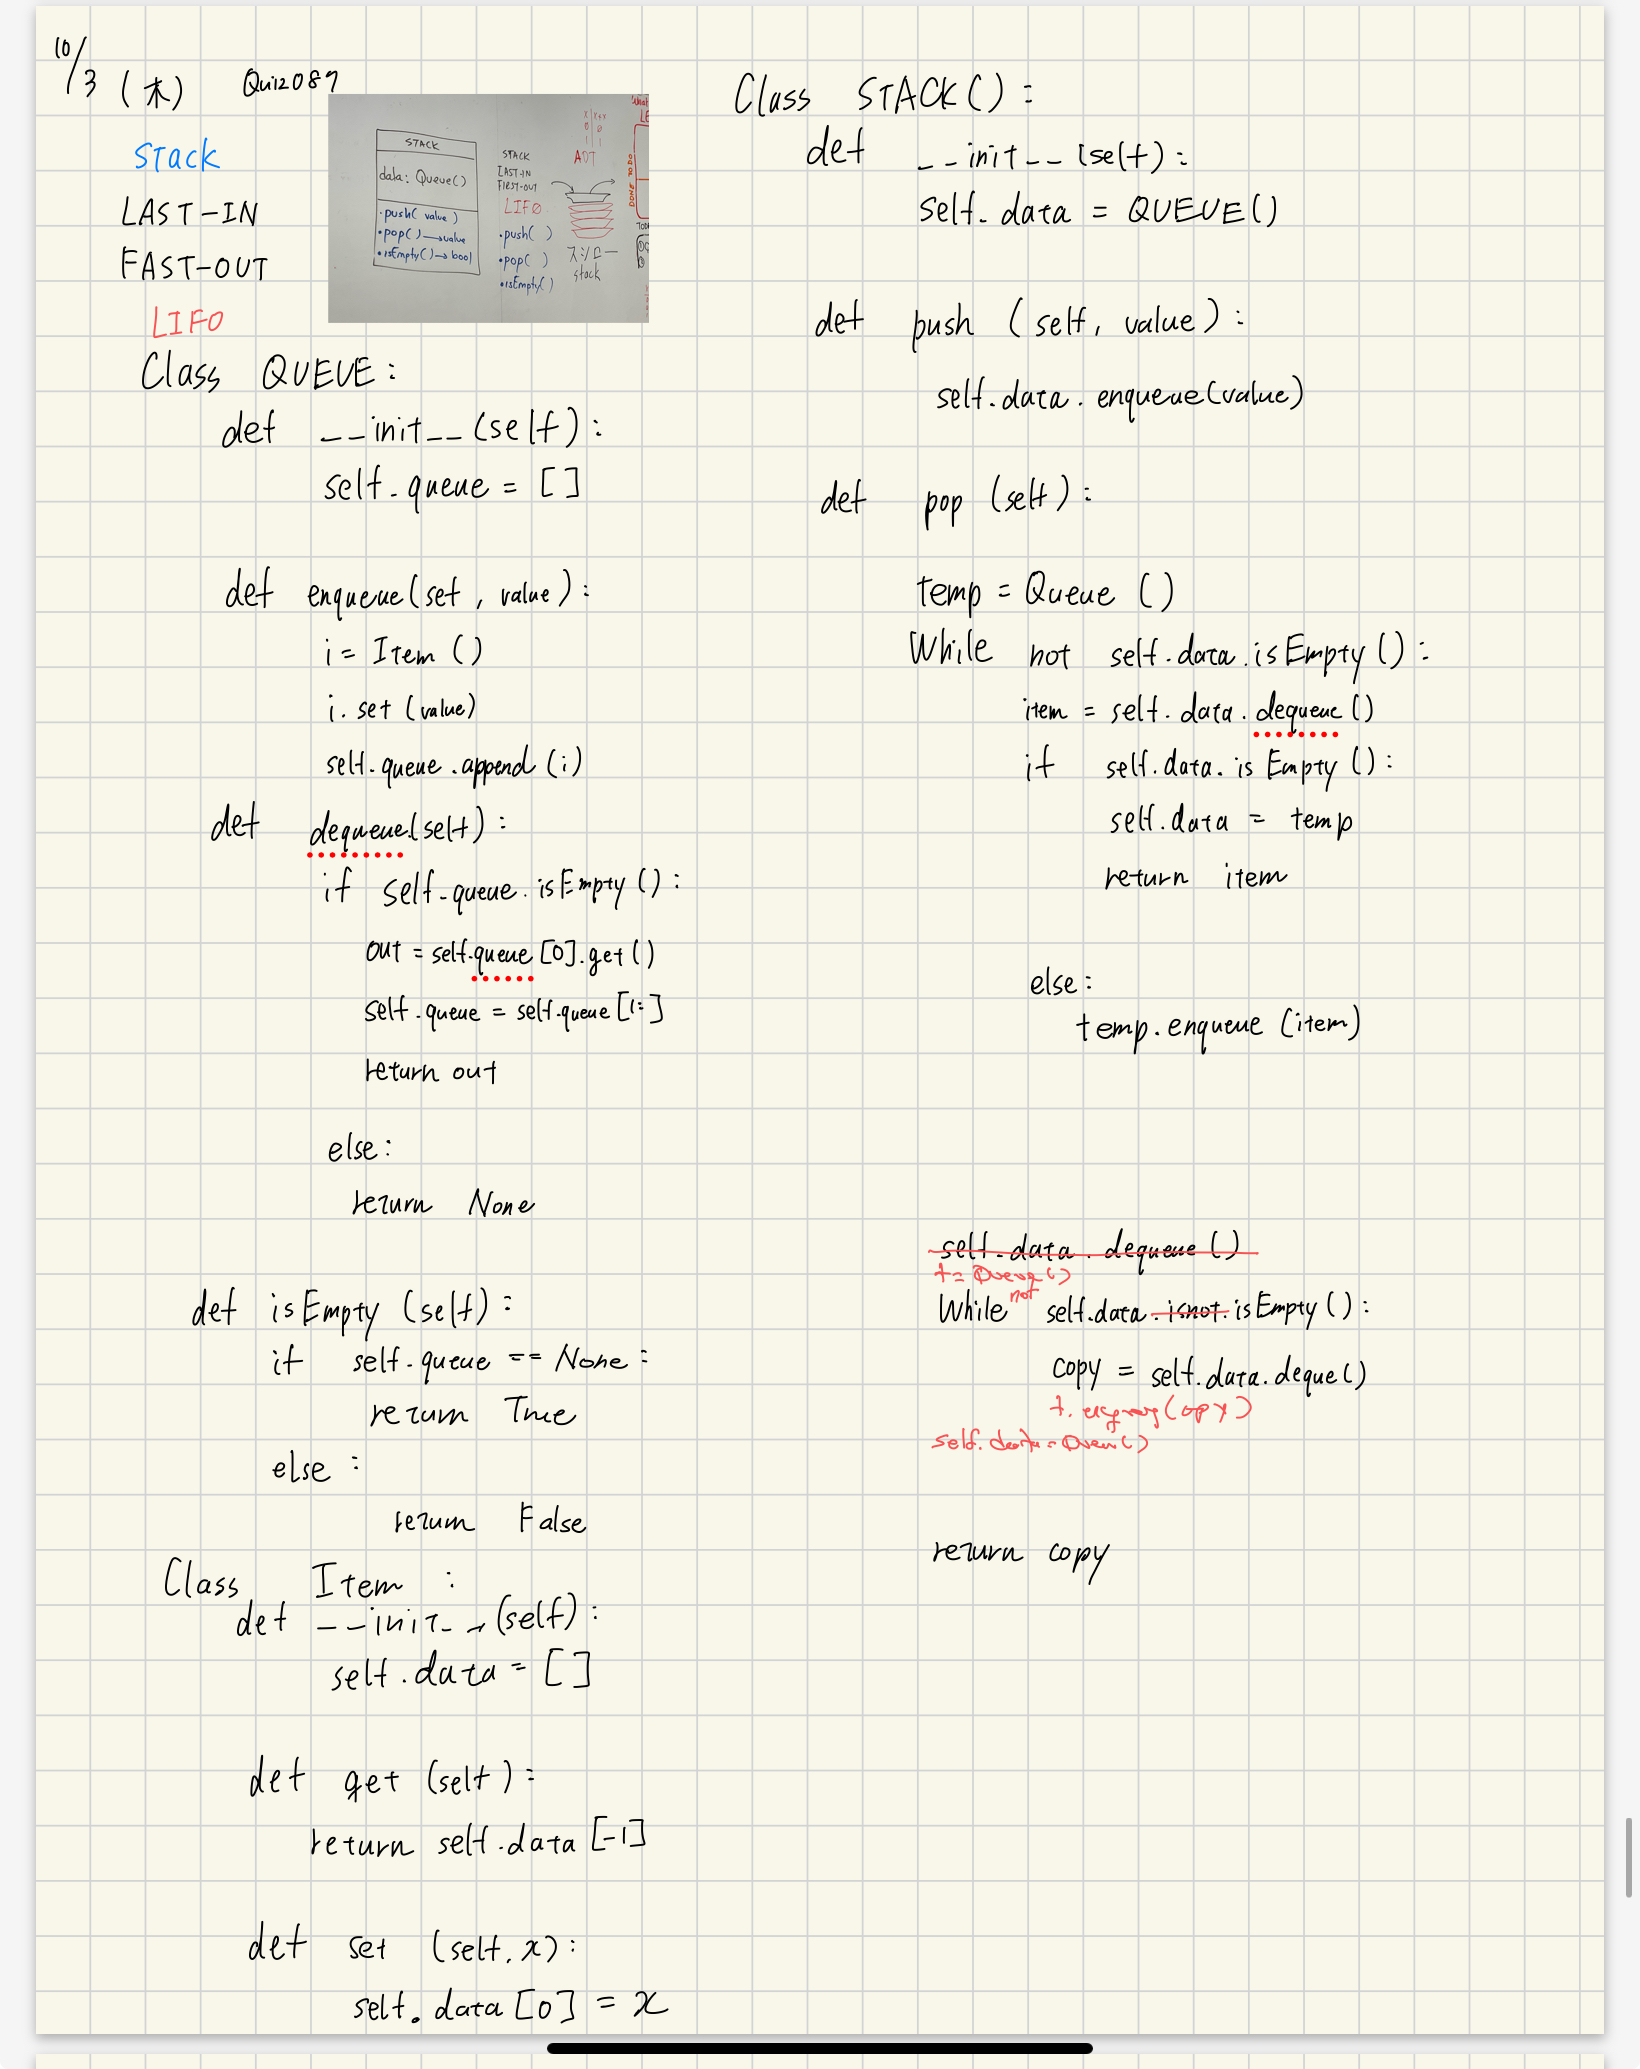 10/3 (木) Quiz089
Stack
LAST-IN
FAST-OUT
LIFO
STACK
data: Queue()
・push( value )
・pop( )→value
・isEmpty( )→bool
STACK
LAST-IN
FIRST-OUT
LIFO
・push( )
・pop( )
・isEmpty( )
ADT
stack
Class QUEUE:
def __init__(self):
self.queue = []
def enqueue(set, value):
i = Item ()
i. set (value)
self.queue.append(i)
def dequeue(self):
if self.queue.isEmpty():
out = self.queue[0].get()
self.queue = self.queue[1:]
return out
else:
return None
def isEmpty (self):
if self.queue == None:
return True
else :
return False
Class Item :
def __init__(self):
self.data = []
def get (self):
return self.data[-1]
def set (self, x):
self.data[0] = x
Class STACK():
def __init__(self):
self.data = QUEUE()
def push (self, value):
self.data.enqueue(value)
def pop (self):
temp = Queue ()
While not self.data.isEmpty():
item = self.data.dequeue()
if self.data.isEmpty():
self.data = temp
return item
else:
temp.enqueue (item)
self.data.dequeue()
t = Queue()
not
While self.data.isnot.isEmpty():
copy = self.data.deque()
self.data = Queue()
return copy